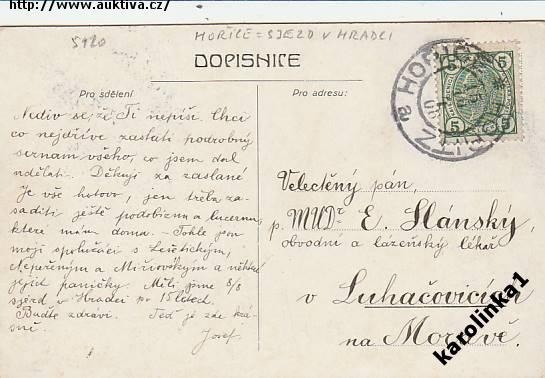 http://www.auktiva.cz/
5920
HOŘICE = SJEZD V HRADCI
DOPISNICE
Pro sdělení
Pro adresu:
Nediv se, že Ti nepíši. Chci
co nejdříve zaslati podrobný
seznam všeho, co jsem dal
udělati. Děkuji za zaslané
Je vše hotovo, jen třeba za-
saditi ještě podobiznu a lucernu,
které mám doma. - Tohle jsou
moji spolužáci s Lešetickým,
Nepřeným a Mířovským a některé
jejich paničky. Měli jsme 8/8
sjezd v Hradci po 15 letech.
Buďte zdrávi. Teď je zde krá-
sně. Josef.
5 5
5 5
HOŘIC
a
Velectěný pán,
p. MUDr E. Slánský,
obvodní a lázeňský lékař
v Luhačovicích
na Moravě.
karolinka1